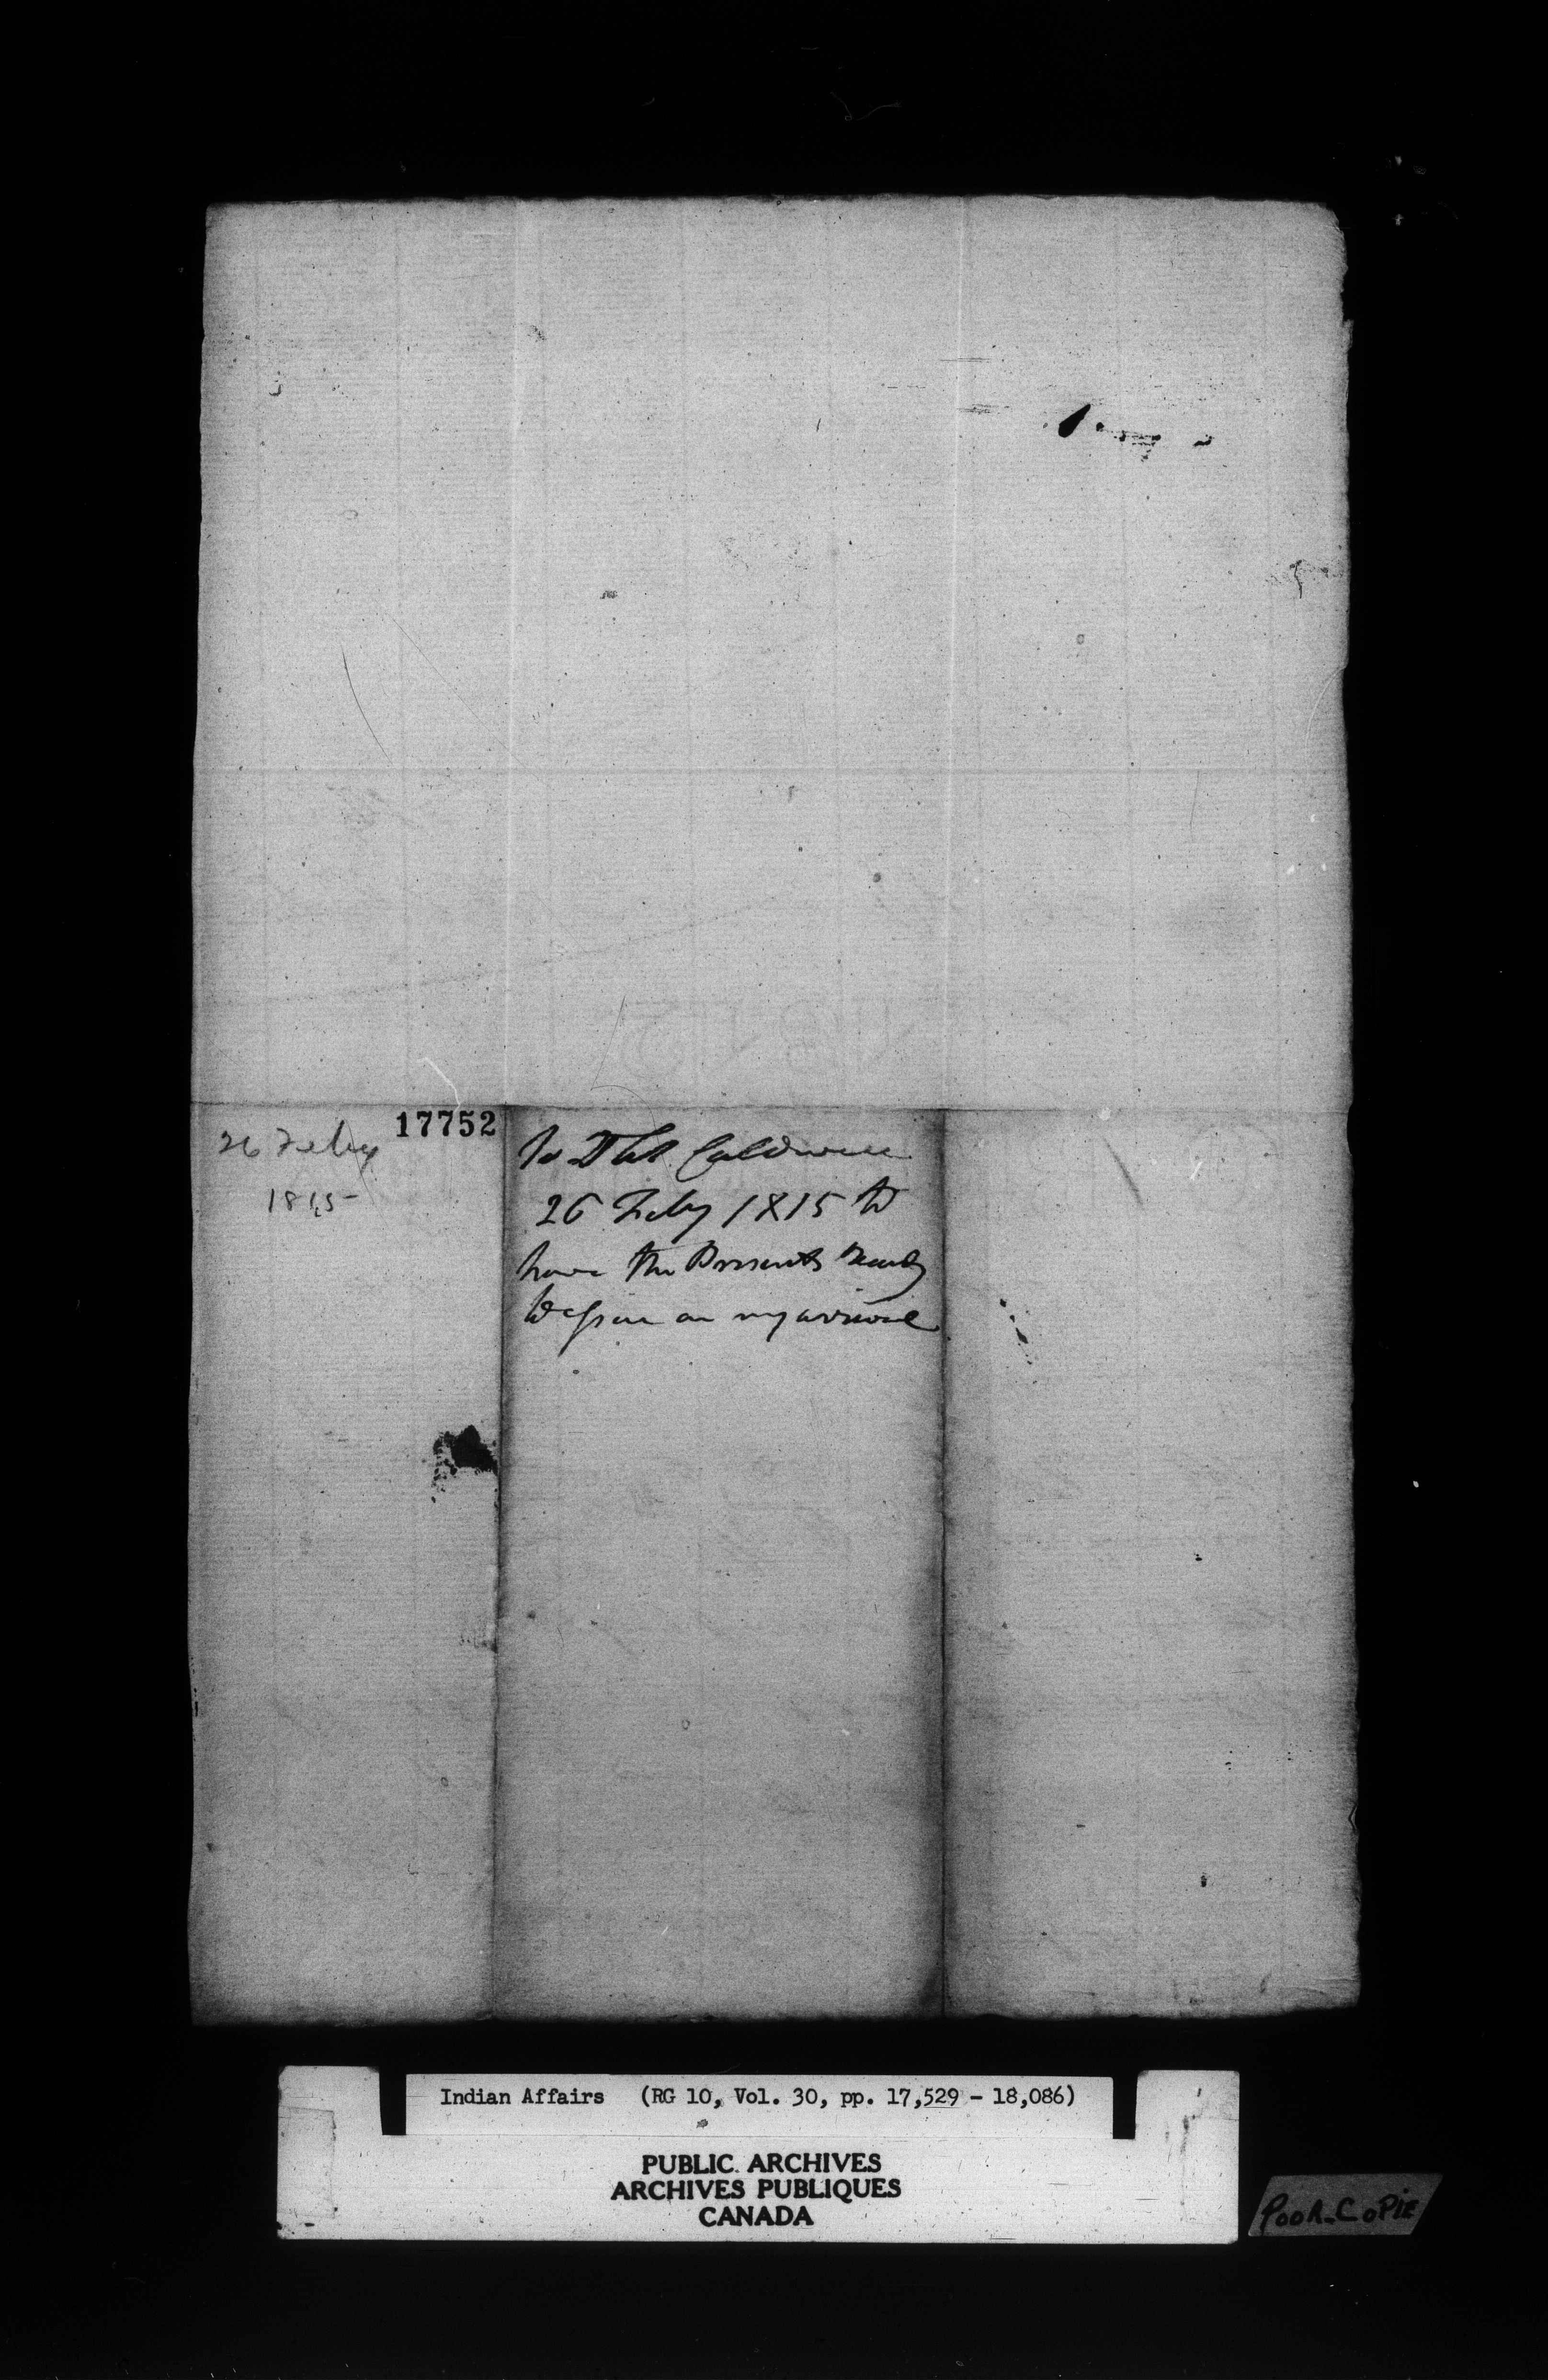 17752
26 Feby
1815
To Caldwell
26 Feby 1815 to
have the Presents ready
to on my arrival
Indian Affairs (RG 10, Vol. 30, pp. 17,529 - 18,086)
PUBLIC ARCHIVES
ARCHIVES PUBLIQUES
CANADA
POOR COPIE